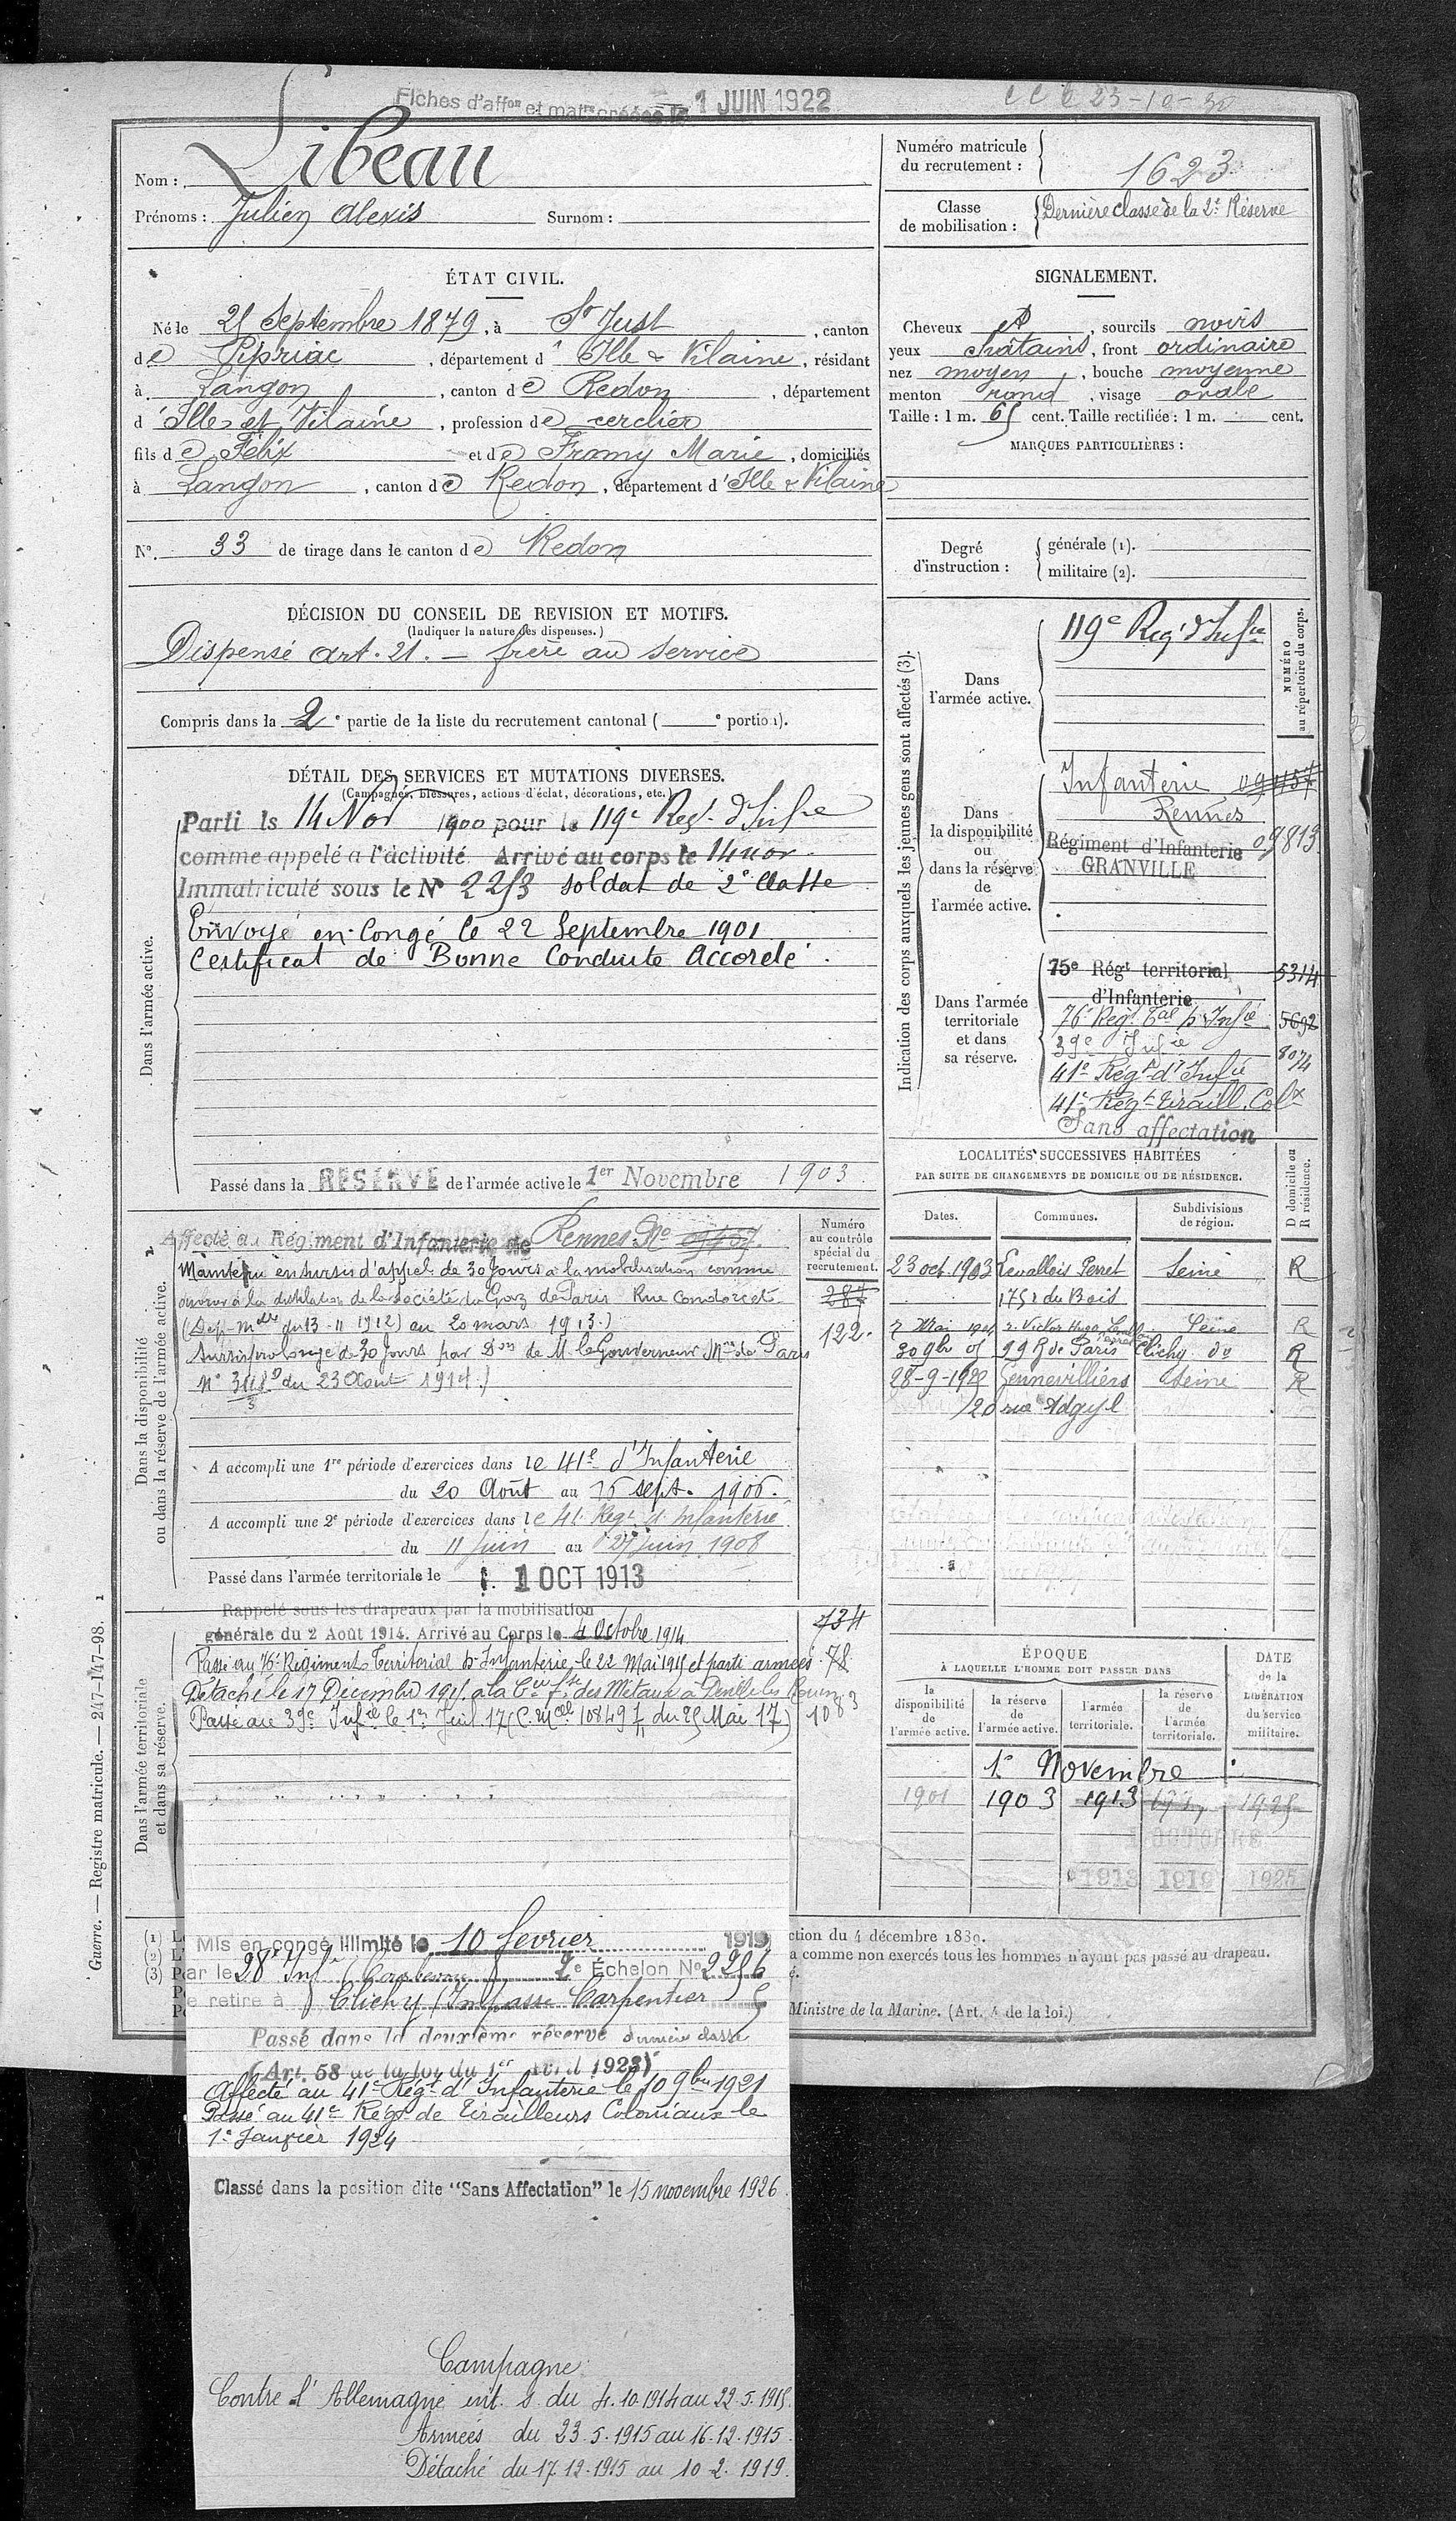 Fiches d'affon et matre créées le 1 JUIN 1922
Nom : Libeau
Prénoms : Julien Alexis Surnom :
Numéro matricule du recrutement : 1623
Classe de mobilisation : Dernière classe de la 2e Réserve
ÉTAT CIVIL.
Né le 25 Septembre 1879, à St Just, canton
de Pipriac, département d'Ille & Vilaine, résidant
à Langon, canton de Redon, département
d'Ille et Vilaine, profession de cerclier
fils de Félix et de Framy Marie, domiciliés
à Langon, canton de Redon, département d'Ille & Vilaine
N° 33 de tirage dans le canton de Redon
SIGNALEMENT.
Cheveux et, sourcils noirs
yeux chatains, front ordinaire
nez moyen, bouche moyenne
menton rond, visage ovale
Taille : 1 m. 65 cent. Taille rectifiée : 1 m. cent.
MARQUES PARTICULIÈRES :
Degré d'instruction : générale (1).
militaire (2).
DÉCISION DU CONSEIL DE REVISION ET MOTIFS.
(Indiquer la nature des dispenses.)
Dispensé art. 21. — frère au service
Compris dans la 2e partie de la liste du recrutement cantonal ( e portion).
DÉTAIL DES SERVICES ET MUTATIONS DIVERSES.
(Campagnes, blessures, actions d'éclat, décorations, etc.)
Dans l'armée active.
Parti le 14 Nov 1900 pour le 119e Regt d'Infie
comme appelé a l'activité Arrivé au corps le 14 nov
Immatriculé sous le N° 2253 soldat de 2e Classe
Envoyé en Congé le 22 Septembre 1901
Certificat de Bonne Conduite Accordé.
Passé dans la RESERVE de l'armée active le 1er Novembre 1903
Indication des corps auxquels les jeunes gens sont affectés (3).
NUMÉRO au répertoire du corps.
Dans l'armée active.
119e Regt d'Infie
Dans la disponibilité ou dans la réserve de l'armée active.
Infanterie
Rennes
Régiment d'Infanterie 09813
GRANVILLE
Dans l'armée territoriale et dans sa réserve.
75e Régt territorial 5314
d'Infanterie
76e Regt Tal d'Infie 5692
39e Infie 8074
41e Régt d'Infie
41e Régt Tiraill. Colx
Sans affectation
Dans la disponibilité ou dans la réserve de l'armée active.
Affecté au Régiment d'Infanterie de Rennes No
Numéro au contrôle spécial du recrutement.
Maintenu en sursis d'appel de 30 jours à la mobilisation comme
ouvrier à la distillation de la société du Gaz de Paris Rue Condorcet
(Dép. mlle du 13-11 1912) au 20 mars 1913.)
122.
Sursis prolongé de 30 jours par Don de M. le Gouverneur Mre de Paris
du 23 Août 1914.)
A accompli une 1re période d'exercices dans le 41e d'Infanterie
du 20 Août au 16 sept. 1906.
A accompli une 2e période d'exercices dans le 41 Regt d'Infanterie
du 11 juin au 27 juin 1908
Passé dans l'armée territoriale le 1 OCT 1913
LOCALITÉS SUCCESSIVES HABITÉES
PAR SUITE DE CHANGEMENTS DE DOMICILE OU DE RÉSIDENCE.
Dates. Communes. Subdivisions de région. D domicile ou R résidence.
23 oct. 1903 Levallois Perret Seine R
175 r du Bois
7 Mai r. Victor Hugo Seine R
30 9bre 05 99 R de Paris Clichy do R
28-9-1925 Gennevilliers Seine R
Dans l'armée territoriale et dans sa réserve.
Rappelé sous les drapeaux par la mobilisation
générale du 2 Août 1914. Arrivé au Corps le 4 Octobre 1914
734
Passé au 76e Régiment Territorial d'Infanterie le 22 Mai 1915 et parti armées 78
Détaché le 17 Décembre 1915 à la Cie fse des Métaux à Deville les Rouen
1083
Passé au 39e Infie le 1er Juil. 17 (C. Mlle 10849 F du 25 Mai 17)
ÉPOQUE
À LAQUELLE L'HOMME DOIT PASSER DANS
la disponibilité de l'armée active.
la réserve de l'armée active.
l'armée territoriale.
la réserve de l'armée territoriale.
DATE de la LIBÉRATION du service militaire.
1er Novembre
1901 1903 1913 1925
OCTOBRE
1913 1919 1925
Mis en congé illimité le 10 fevrier 1919
par le 28e Infie 2e Échelon No 2256
se retire à Clichy (Impasse Carpentier) S
Passé dans la deuxième réserve dernière classe
(Art. 58 de la loi du 1er Avril 1923)
Affecté au 41e Régt d'Infanterie le 10 9bre 1921
Passé au 41e Régt de Tirailleurs Coloniaux le
1er Janvier 1924
Classé dans la position dite "Sans Affectation" le 15 novembre 1926.
ction du 4 décembre 1889.
a comme non exercés tous les hommes n'ayant pas passé au drapeau.
Ministre de la Marine. (Art. 4 de la loi.)
Campagne
Contre l'Allemagne int. s. du 4.10.1914 au 22.5.1915.
Armées du 23.5.1915 au 16.12.1915.
Détaché du 17.12.1915 au 10.2.1919.
Guerre. — Registre matricule. — 247-147-98.